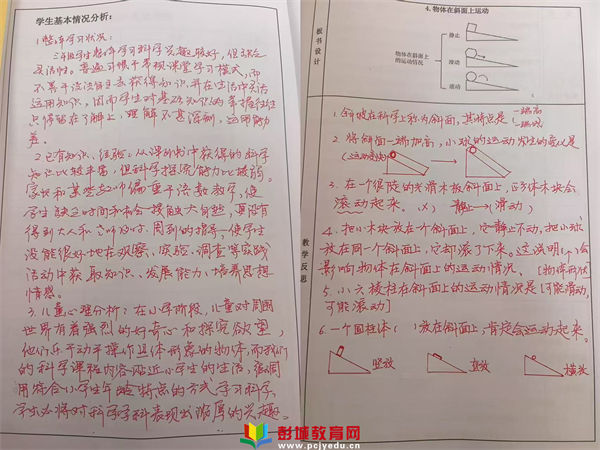 学生基本情况分析：
1.整体学习状况：
三年级学生整体学习科学兴趣较好，但缺乏
灵活性。普遍习惯于常规课堂学习模式，而
不善于设法自主去获得知识并在生活中灵活
运用知识，因而学生对基础知识的掌握往往
只停留在了解上，理解不甚深刻，运用能力
差。
2.已有知识、经验：从课外书中获得的科学
知识比较丰富，但科学探究能力比较弱。
家长和某些教师偏重于语数教学，使
学生缺乏时间和机会接触大自然，更没有
得到大人和老师及时、周到的指导，使学生
没能很好地在观察、实验、调查等实践
活动中获取知识、发展能力、培养思想
情感。
3.儿童心理分析：在小学阶段，儿童对周围
世界有着强烈的好奇心和探究欲望，
他们乐于动手操作具体形象的物体，而我们
的科学课程内容贴近小学生的生活，强调
用符合小学生年龄特点的方式学习科学，
学生必将对科学学科表现出浓厚的兴趣。
板书设计
4.物体在斜面上运动
物体在斜面上
的运动情况
静止
滑动
滚动
教学反思
1.斜坡在科学上称为斜面，其特点是 一端高
一端低
2.将斜面一端加高，小球的运动发生的变化是
(运动变快)
3.在一个很陡的光滑木板斜面上，正方体木块会
滚动起来。(×) 静止→(滑动)
4.把小木块放在一个斜面上，它静止不动，把小球
放在同一个斜面上，它却滚了下来。这说明( )会
影响物体在斜面上的运动情况。[物体形状]
5.小六棱柱在斜面上的运动情况是[可能滑动，
可能滚动]
6.一个圆柱体( )放在斜面上，肯定会运动起来。
竖放
直放
横放
彭城教育网
www.pcjyedu.cn